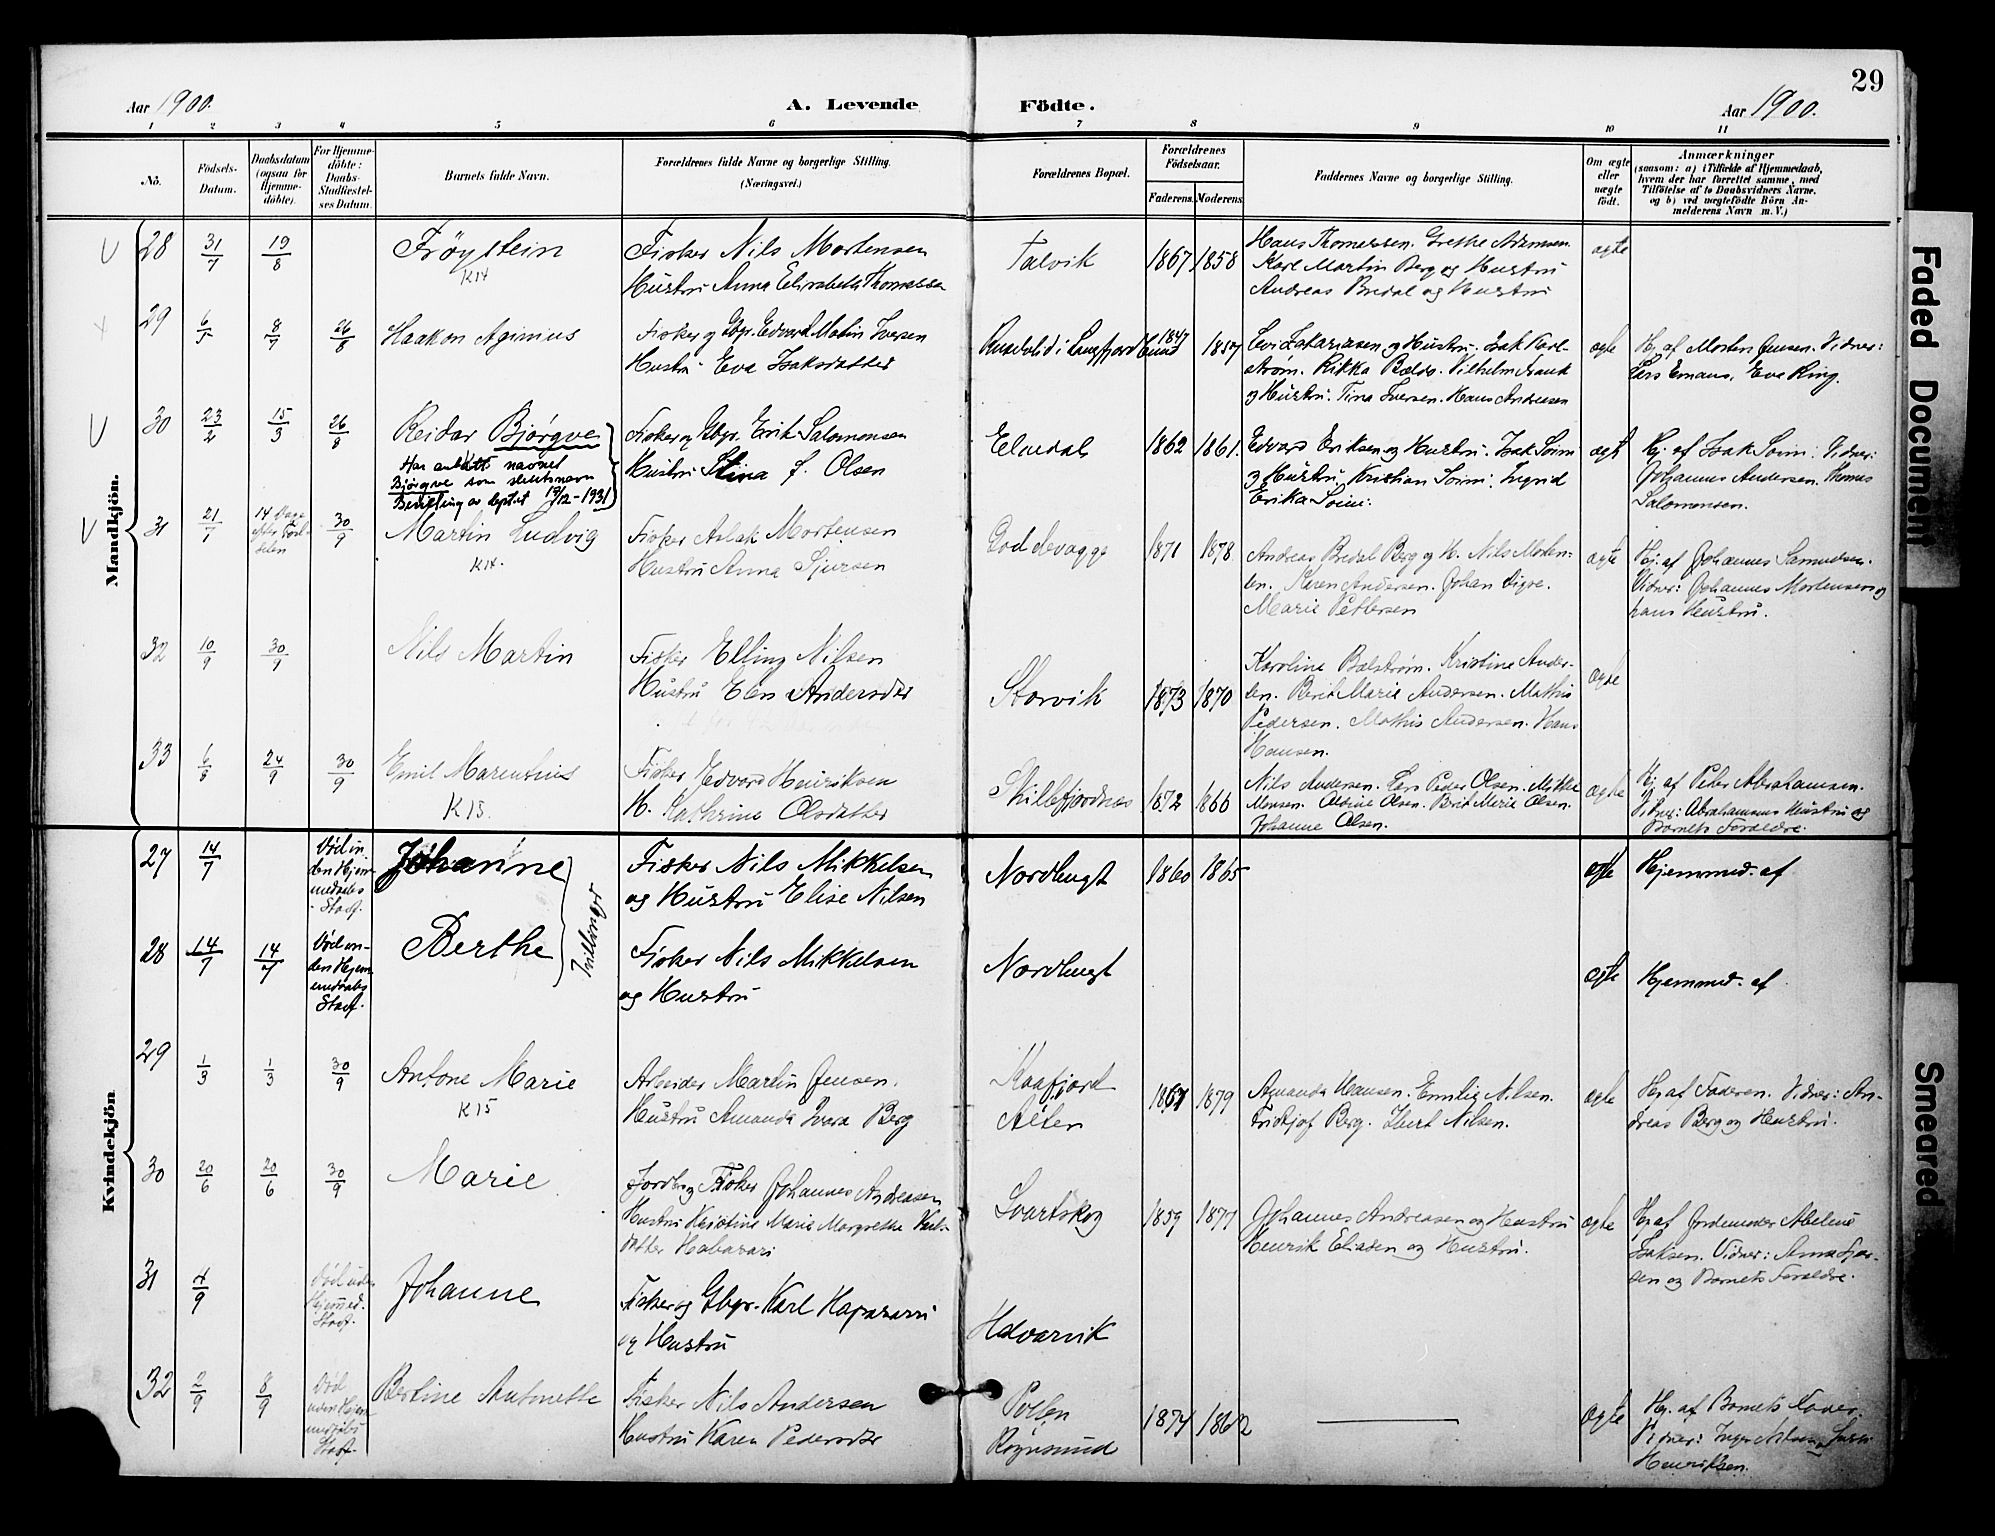 29
Aar 1900.
A. Levende
Födte.
Aar 1900.
1 2 3 4 5 6 7 8 9 10 11
No.
Födsels-
Datum.
Daabsdatum
(ogsaa for
Hjemme-
döbte).
For Hjemme-
döbte:
Daabs-
Stadfæstel-
ses Datum.
Barnets fulde Navn.
Forældrenes fulde Navne og borgerlige Stilling.
(Næringsvei.)
Forældrenes Bopæl.
Forældrenes
Födselsaar.
Faderens.
Moderens.
Faddernes Navne og borgerlige Stilling.
Om ægte
eller
uægte
födt.
Anmærkninger
(saasom: a) i Tilfælde af Hjemmedaab,
hvem der har forrettet samme, med
Tilföielse af to Daabsvidners Navne,
og b) ved uægtefödte Börn An-
melderens Navn m. V.)
Mandkjön.
28 31/7 19/8 Frøystein
K14
Fisker Nils Mortensen
Hustru Anna Elisabeth Thomassen
Talvik 1867 1858
Hans Thomassen. Grethe
Karl Martin Berg og Hustru
Andreas Bredal og Hustru
ægte
29 26/8 Haakon Aginius
Fisker og Gbr. Edvard Matin Iversen
Hustru Eva Isaksdatter
i Langfjord 1847 1857
Levi Zakariasen og Hustru. Isak Karl-
strøm. Rikka Vilhelm
og Hustru. Tina Iversen. Hans Andreasen
ægte
Hj. af Morten Jensen. Vidner:
Lars Emaus, Eva Ring.
30 23/2 15/3 26/8 Reidar Bjørgve
Har antatt navnet
Bjørgve som slektsnavn
Bevilling av deptet 19/12-1931
Fisker og Gbr. Erik Salomonsen
Hustru Stina f. Olsen
Elvedal 1862 1861
Edvard Eriksen og Hustru. Isak Soini
og Hustru, Kristian Soini. Ingrid
Erika Soini.
ægt
Hj. af Isak Soini: Vidner:
Johannes Andersen. Thomas
Salomonsen.
31 21/7 14 Dage
efter Fød-
selen 30/9 Martin Ludvig
K14.
Fisker Aslak Mortensen
Hustru Anna Sjursen
1871 1878
Andreas Bredal Berg og H. Nils Morten-
sen. Karen Andersen. Johan
Marie Pettersen
ægte
Hj. af Johannes Samuelsen.
Vidner: Johannes Mortensen og
hans Hustru.
32 10/9 30/9 Nils Martin
Fisker Elling Nilsen
Hustru Elen Andersdtr
Storvik 1873 1870
Karoline Balstrøm. Kristine Ander-
sen. Berit Marie Andersen. Mathis
Pedersen. Mathis Andersen. Hans
Hansen.
ægte
33 6/8 24/9 30/9 Emil Marentius
K15.
Fisker Edvard Henriksen
H. Kathrine Olsdatter
Skillefjordnes 1872 1866
Nils Andersen. Lars Peder Olsen. Mikkel
Monsen. Oline Olsen. Berit Marie Olsen.
Johanne Olsen.
ægte
Hj. af Peter Abrahamsen.
Vidner: Abrahamsens Hustru og
Barnets Forældre.
Kvindekjön
27 14/7 Død in-
den Hjem-
medaabs
Stadf. Johanne
Tvillinger
Fisker Nils Mikkelsen
og Hustru Elise Nilsen
Nordlugt 1860 1865
ægte
Hjemmed. af
28 14/7 14/7 Død in-
den Hjem-
medaabs
Stadf. Berthe
Fisker Nils Mikkelsen
og Hustru
Nordlugt
ægte
Hjemmed. af
29 1/3 1/3 30/9 Antone Marie
K15
Arbeider Martin Jensen.
Hustru Amanda Berg
Kaafjord
Alten
1867 1879
Amanda Hansen. Emilie Nilsen.
Fridtjof Berg. Nilsen.
ægte
Hj. af Faderen. Vidner: An-
dreas Berg og Hustru.
30 20/6 20/6 30/9 Marie
Jordb. og Fisker Johannes Andreasen
Hustru Kristine Marie Margrethe Karls-
datter
Svartskog 1859 1877
Johannes Andreasen og Hustru
Henrik Eliasen og Hustru.
ægte
Hj. af Jordemoder Abeline
Isaksen. Vidner: Anna
sen og Barnets Forældre.
31 4/9 Død uden
Hjemmed.
Stadf. Johanne
Fisker og Gbr. Karl
og Hustru
Halvarvik
32 2/9 8/9 Død
uden Hjem-
medaabs
Stadf. Bertine Antonette
Fisker Nils Andersen
Hustru Karen Pedersdtr
Pollen
Rognsund
1874 1862
ægte
Hj. af Barnets Fader.
Vidner: Inger Nilsen,
Henriksen.
Faded Document
Smeared